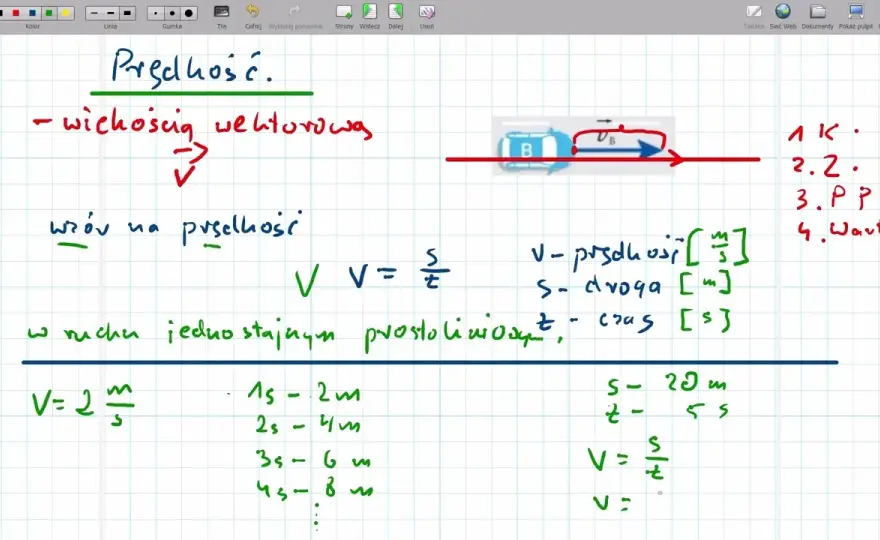 Kolor Linia Gumka Tła Cofnij Strony Wstecz Dalej Usuń Sieć Web Dokumenty Pokaż pulpit
Prędkość.
- wielkością wektorową
V
B
v B
1 K.
2. Z.
3. P P
4. Wart
wzór na prędkość
V V = s/t
v - prędkość [m/s]
s - droga [m]
t - czas [s]
w ruchu jednostajnym prostoliniowym.
V = 2 m/s
1s - 2m
2s - 4m
3s - 6 m
4s - 8 m
s - 20 m
t - 5 s
V = s/t
V =